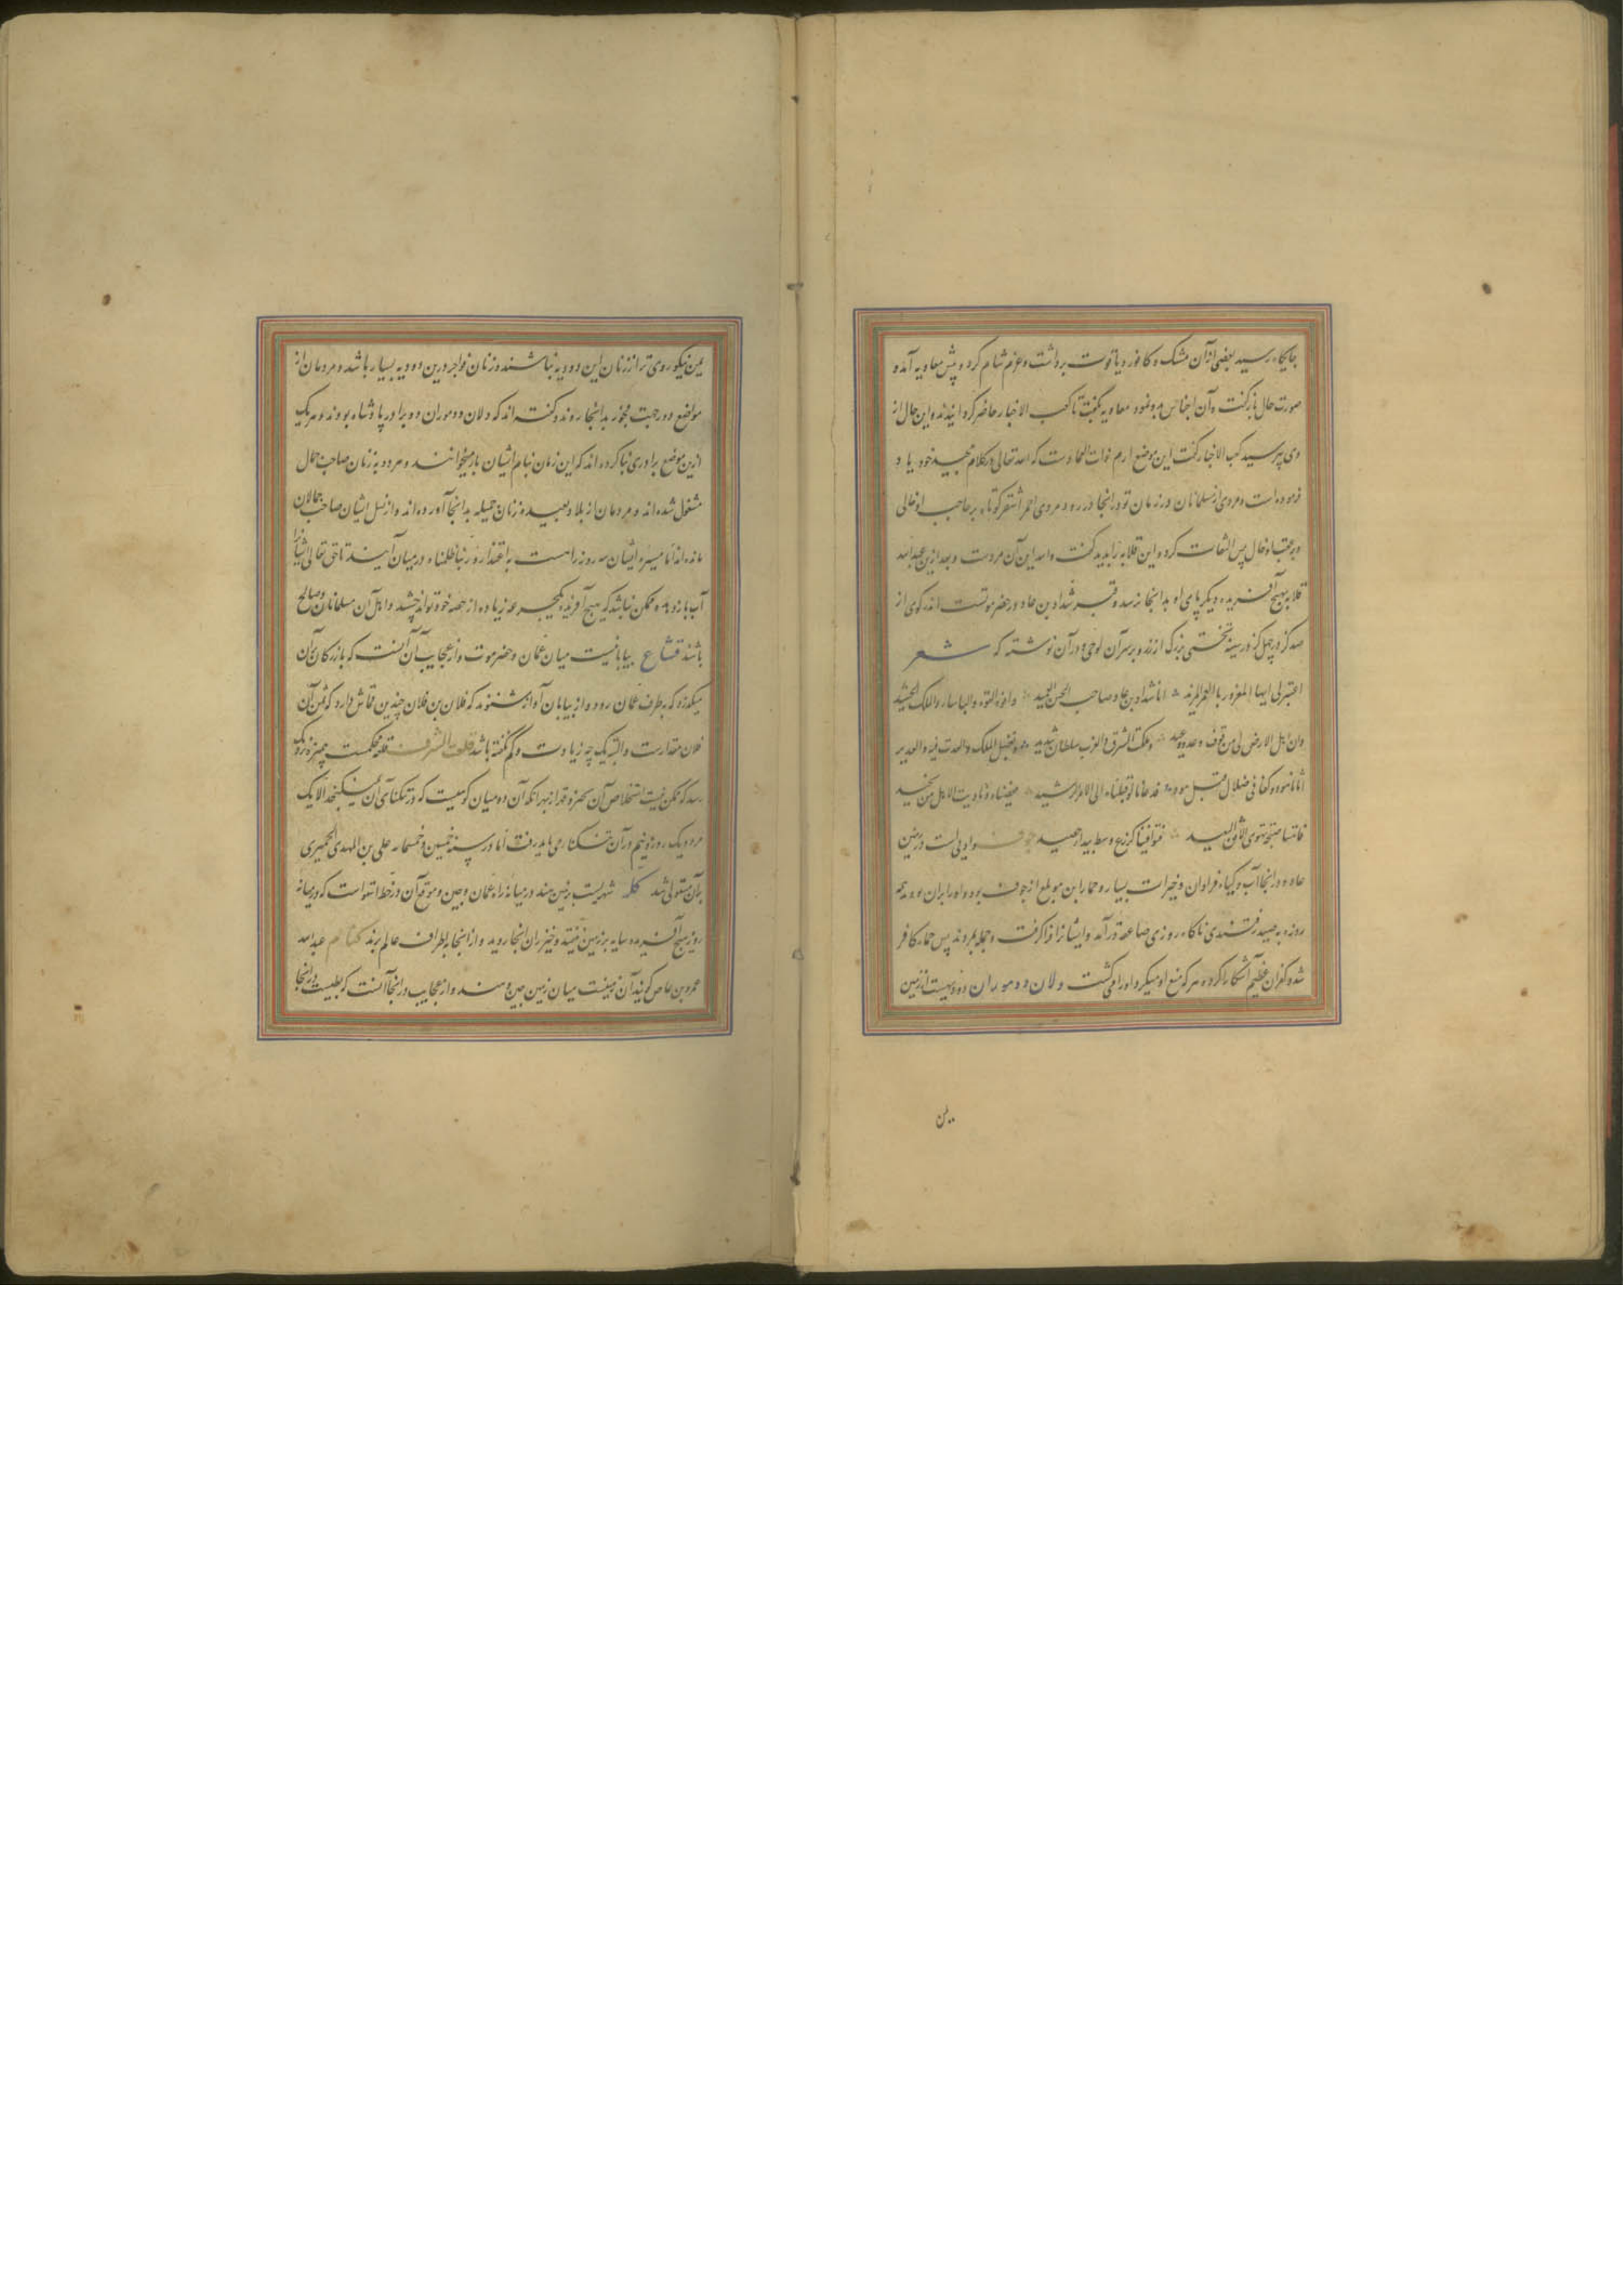 جایگاه رسید بعضی ازان مشک و کافور و یاقوت برداشت و عزم شام کرد و پیش معاویه آمد و
صورت حال بازگفت و آن اجناس بدو نمود معاویه بگفت تا کعب الاخبار حاضر گردانیدند و این حال از
وی پرسید کعب الاخبار گفت این موضع ارم ذات العمادست که الله تعالی در کلام مجید خود یاد
فرموده است و مردی از مسلمانان در زمان تو در انجا در رود مردی احمر اشقر کوتاه بر حاجب او خالی
و بر عقب او خال پس التفات کرد و این قلابه را بدید گفت والله این آن مردست و بعد ازین عبدالله
قلابه هیچ آفریده دیگر پای او بدانجا نرسد و قبر شداد بن عاد در حضرموتست اندر کوی از
صد گز در چهل گز در سینه تختی بزرگ از زر و بر سر آن لوحی و در آن نوشته که شعر
اعتبرلی ایها المغرور بالعمر المدید انا شداد بن عاد صاحب الحصن العمید واخو القوة والباساء والملک الحشید
وان اهل الارض لی من خوف وعده وعید وملکت الشرق والغرب بسلطان شدید وبفضل الملک والعدت فیه والعدید
هود وکنا فی ضلال قبل هود قد دعانا لو قبلناه الی الامر الرشید فعصیناه ونادیت الا هل من محید
فاتتنا صیحة تهوی الافق البعید فتوافینا کزرع وسط بیدا حصید جوف وادیی است در زمین
عاد و در انجا آب و گیاه فراوان و خیرات بسیار و حمار بن مویلع از جوف بوده او را بران بود همه
روزه به صید رفتندی ناگاه روزی صاعقه درآمد و ایشانرا فراگرفت و جمله بمردند پس حمار کافر
شد و کفران عظیم آشکارا کرد و هر که منع او میکرد او را می کشت و لان و دموران دو دیهیست از زمین
یمن
یمن نیکوروی تر از زنان این دو دیه نباشند و زنان فواجر درین دو دیه بسیار باشد و مردمان از
مواضع دور جهت فجور بدانجا روند و گفته اند که دلان و دموران دو برادر پادشاه بودند و هر یک
ازین موضع برادری بنا کرده اند که این زمان بنام ایشان باز میخوانند و هر دو به زنان صاحب جمال
مشغول شده اند و مردمان از بلاد بعیده زنان جمیله بدانجا آورده اند و از نسل ایشان صاحب جمالان
مانده اند
آب باز دهد و ممکن نباشد که هیچ آفریده یکجرعه زیاده از حصه خود تواند چشید و اهل آن مسلمانان و صالح
باشند قشاع بیابانیست میان عمان و حضرموت و از عجایب آن آنست که بازرگان آن
میگذرد که بطرف عمان رود و از بیابان آواز شنوند که فلان بن فلان چندین قماش دارد که ثمن آن
فلان مقدارست و البته یک حبه زیادت و کم نگفته باشد قلعة الشرف قلعه محکمست چیزه نزدیک
رسد که ممکن نیست استخلاص آن بحرب و قهر از بهر آنکه آن در میان کوهیست که در تنگنای آن نمیگنجد الا یک
مرد و یک روز و نیم در آن تنگنا می باید رفت اما در سنه خمسین و خمسمایه علی بن المهدی الحمیری
بران مستولی شد کله شهریست بزمین هند در میانه راه عمان و چین و موقع آن در خط استواست که در میانه
روز هیچ آفریده سایه بر زمین نیفتد و خیزران انجا روید و از انجا باطراف عالم برند کنام عبدالله
عمرو بن عاص گوید آن زمینیست میان زمین چین و هند و از عجایب در انجا آنست که بطیست در انجا